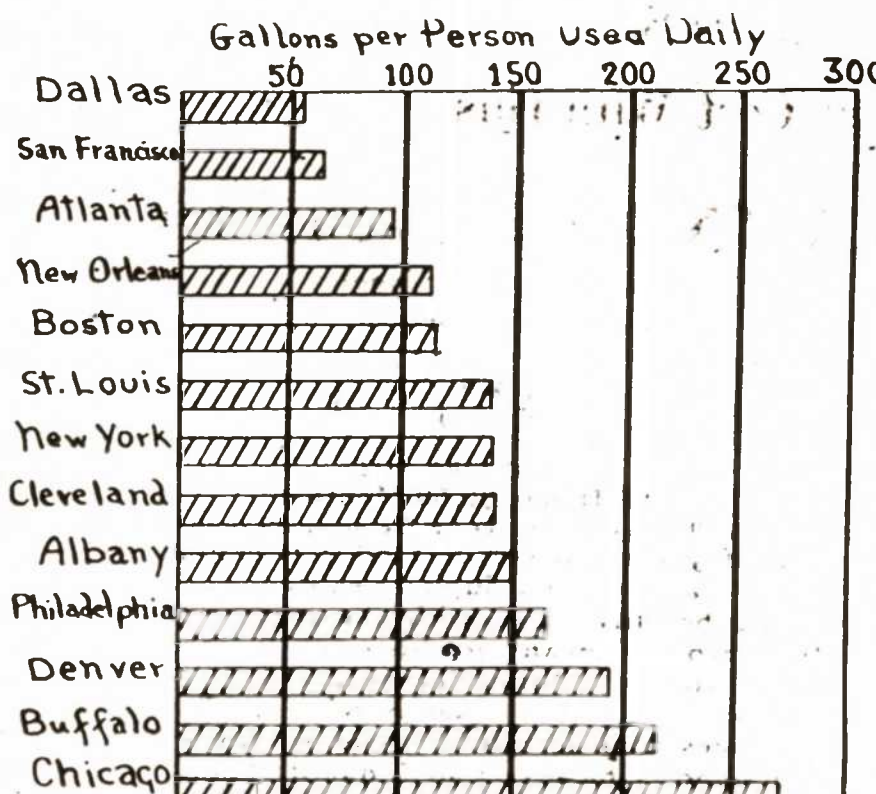 Gallons per Person Used Daily
50 100 150 200 250 300
Dallas
San Francisco
Atlanta
New Orleans
Boston
St. Louis
New York
Cleveland
Albany
Philadelphia
Denver
Buffalo
Chicago